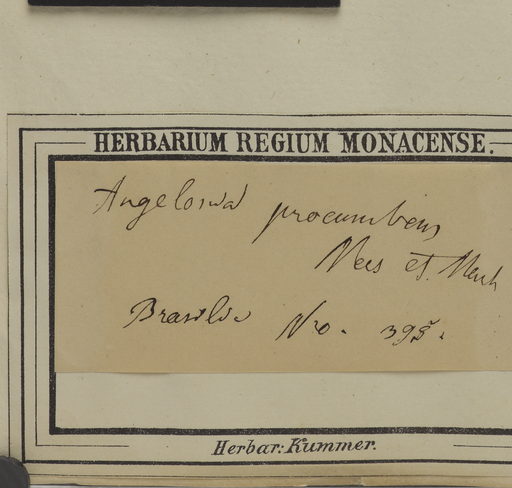 HERBARIUM REGIUM MONACENSE.
Angelonia procumbens
Nees et. Mart
Brasilia Nro. 395.
Herbar: Kummer.